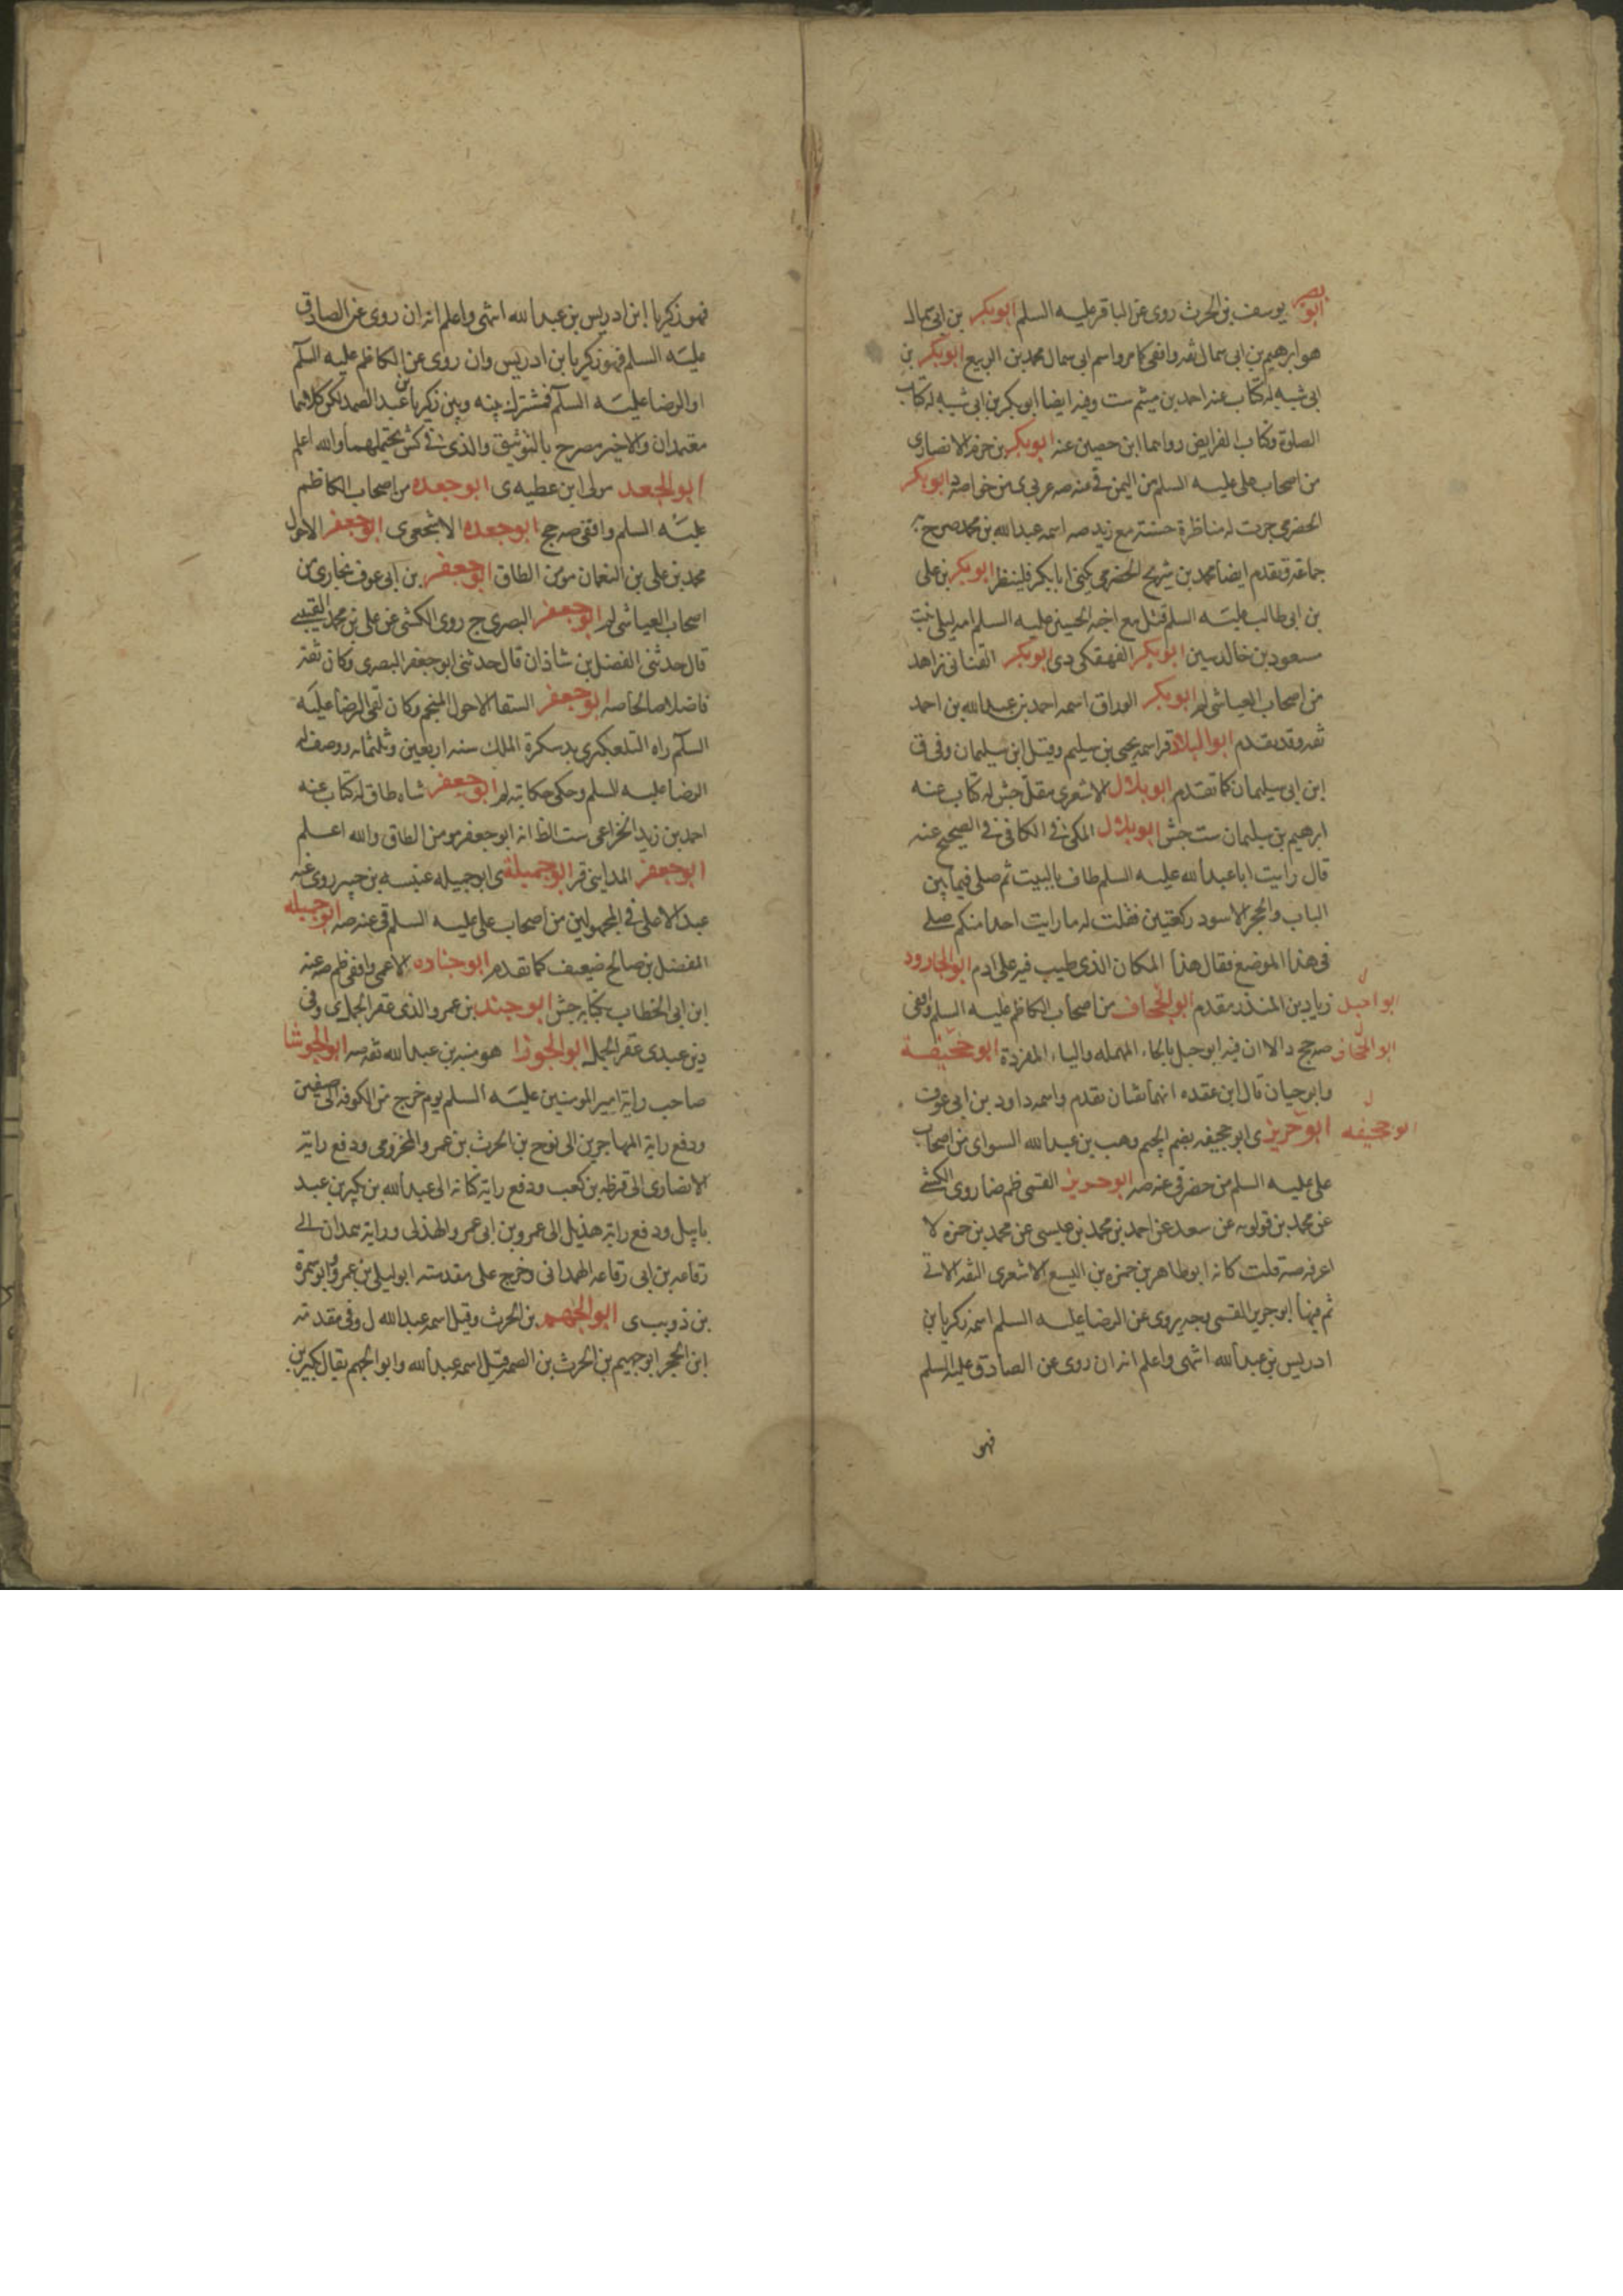 ابو بصير يوسف بن الحرث روى عن الباقر عليه السلم ابوبكر بن ابى سمال
هو ابرهيم بن ابى سمال ثقه واقفى كما مر واسم ابى سمال محمد بن الربيع ابوبكر بن
ابى شيبه له كتاب عنه احمد بن ميثم ست وفيه ايضا ابوبكر بن ابى شيبه له كتاب
الصلوة وكتاب الفرايض رواهما ابن حصين عنه ابوبكر بن حزم الانصارى
من اصحاب على عليه السلم من اليمن قى عنه صه عربى ى من خواصه د ابوبكر
الحضرمى جرت له مناظرة حسنة مع زيد صه اسمه عبد الله بن محمد صرح به
جماعة وتقدم ايضا محمد بن شريح الحضرمى يكنى ابا بكر فلينظر ابوبكر بن على
بن ابى طالب عليه السلم قتل مع اخيه الحسين عليه السلم امه ليلى بنت
مسعود بن خالد سين ابوبكر الفهفكى دى ابوبكر القنانى زاهد
من اصحاب العياشى لم ابوبكر الوراق اسمه احمد بن عبد الله بن احمد
ثقه وقد تقدم ابو البلاد قر اسمه يحيى بن سليم وقيل ابن سليمان وفى ق
ابن ابى سليمان كما تقدم ابوبلال الاشعرى مقل جش له كتاب عنه
ابرهيم بن سليمان ست جش ابوبلال المكى فى الكافى فى الصحيح عنه
قال رايت ابا عبد الله عليه السلم طاف بالبيت ثم صلى فيما بين
الباب والحجر الاسود ركعتين فقلت له ما رايت احدا منكم صلى
فى هذا الموضع فقال هذا المكان الذى طيب فيه على ادم ابو الجارود
زياد بن المنذر مقدم ابو الجحاف من اصحاب الكاظم عليه السلم واقفى
ابو احبل
صه جج د الا ان فيه ابو جبل بالحاء المهمله والياء المفردة ابو جحيفة
ابو الجحاف
وابو حيان قال ابن عقده انهما ثقتان تقدم واسمه داود بن ابى عوف
ابو حريز ى ابو جحيفه بضم الجيم وهب بن عبد الله السواى من اصحاب
ابو جحيفه
على عليه السلم من حضر قى عنه صه ابوحريز القمى ظم ضا روى الكشى
عن محمد بن قولويه عن سعد عن احمد بن محمد بن عيسى عن محمد بن حمزه لا
اعرفه صه قلت كانه ابوطاهر بن حمزه بن اليسع الاشعرى الثقه الاتى
ثم فيها ابو جرير القمى وجه يروى عن الرضا عليه السلم اسمه زكريا بن
ادريس بن عبد الله انتهى واعلم انه ان روى عن الصادق عليه السلم
فهو
فهو زكريا ابن ادريس بن عبد الله انتهى واعلم انه ان روى عن الصادق
عليه السلم فهو زكريا بن ادريس وان روى عن الكاظم عليه السلم
او الرضا عليه السلم فمشترك بينه وبين زكريا بن عبد الصمد لكن كلاهما
معتمدان والاخير مصرح بالتوثيق والذى فى كش يحتملهما والله اعلم
ابو الجعد مولى ابن عطيه ى ابوجعده من اصحاب الكاظم
عليه السلم واقفى صه جج ابوجعده الاشجعى ى ابوجعفر الاحول
محمد بن على بن النعمان مومن الطاق ابوجعفر بن ابى عوف بخارى من
اصحاب العياشى لم ابوجعفر البصرى ج روى الكشى عن على بن محمد القتيبى
قال حدثنى الفضل بن شاذان قال حدثنى ابو جعفر البصرى وكان ثقه
فاضلا صالحا صه ابوجعفر السقا الاحول المنجم وكان لقى الرضا عليه
السلم راه التلعكبرى بدسكرة الملك سنه اربعين وثلثمائه ووصف له
الرضا عليه السلم وحكى حكاية لم ابوجعفر شاه طاق له كتاب عنه
احمد بن زيد الخزاعى ست الظ انه ابو جعفر مومن الطاق والله اعلم
ابوجعفر المداينى قر ابوجميلة ى ابو جميله عنبسه بن جبير روى عنه
عبد الاعلى فى المجهولين من اصحاب على عليه السلم قى عنه صه ابوجميله
المفضل بن صالح ضعيف كما تقدم ابوجناده الاعمى واقفى ظم صه عنه
ابن ابى الخطاب بكتابه جش ابوجند بن عمرو الذى عقر الجمل ى وفى
دين عبدى عقر الجمل ابو الجوزا هو منبه بن عبد الله ثقه صه ابوالجوشا
صاحب راية امير المومنين عليه السلم يوم خرج من الكوفه الى صفين
ودفع راية المهاجرين الى نوح بن الحرث بن عمرو المخزومى ودفع راية
الانصارى الى قرظه بن كعب ودفع راية كنانه الى عبد الله بن بكير بن عبد
باييل ودفع راية هذيل الى عمرو بن ابى عمرو الهذلى وراية همدان الى
رفاعه بن ابى رفاعه الهمدانى وخرج على مقدمته ابو ليلى بن عمرو وابو سمرة
بن ذويب ى ابو الجهم بن الحرث وقيل اسمه عبد الله ل وفى مقدمته
ابن الحجر ابو جهيم بن الحرث بن الصمه قيل اسمه عبد الله وابو الجهم يقال بكير بن